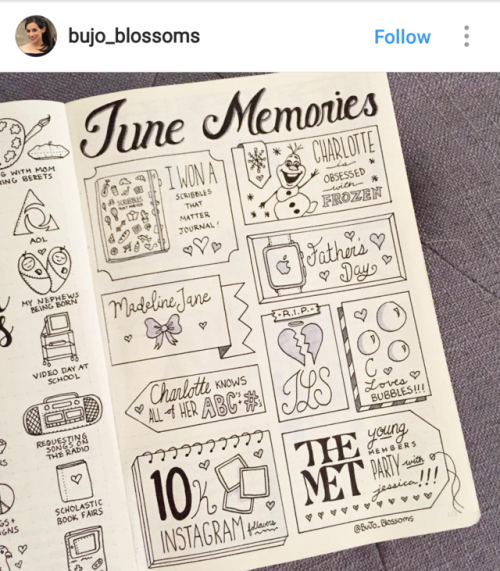 bujo_blossoms
Follow
June Memories
I WON A
SCRIBBLES
THAT
MATTER
JOURNAL!
SCRIBBLES
THAT MATTER
CHARLOTTE
is
OBSESSED
with
FROZEN
Father's
Day
Madeline Jane
R.I.P.
JLS
C
Loves
BUBBLES!!!
Charlotte KNOWS
ALL of HER ABC's
10K
INSTAGRAM followers
THE
MET
young
MEMBERS
PARTY with
jessica!!!
@BuJo_Blossoms
G WITH MOM
ING BERETS
AOL
MY NEPHEWS
BEING BORN
VIDEO DAY AT
SCHOOL
REQUESTING
SONGS ON
THE RADIO
SCHOLASTIC
BOOK FAIRS